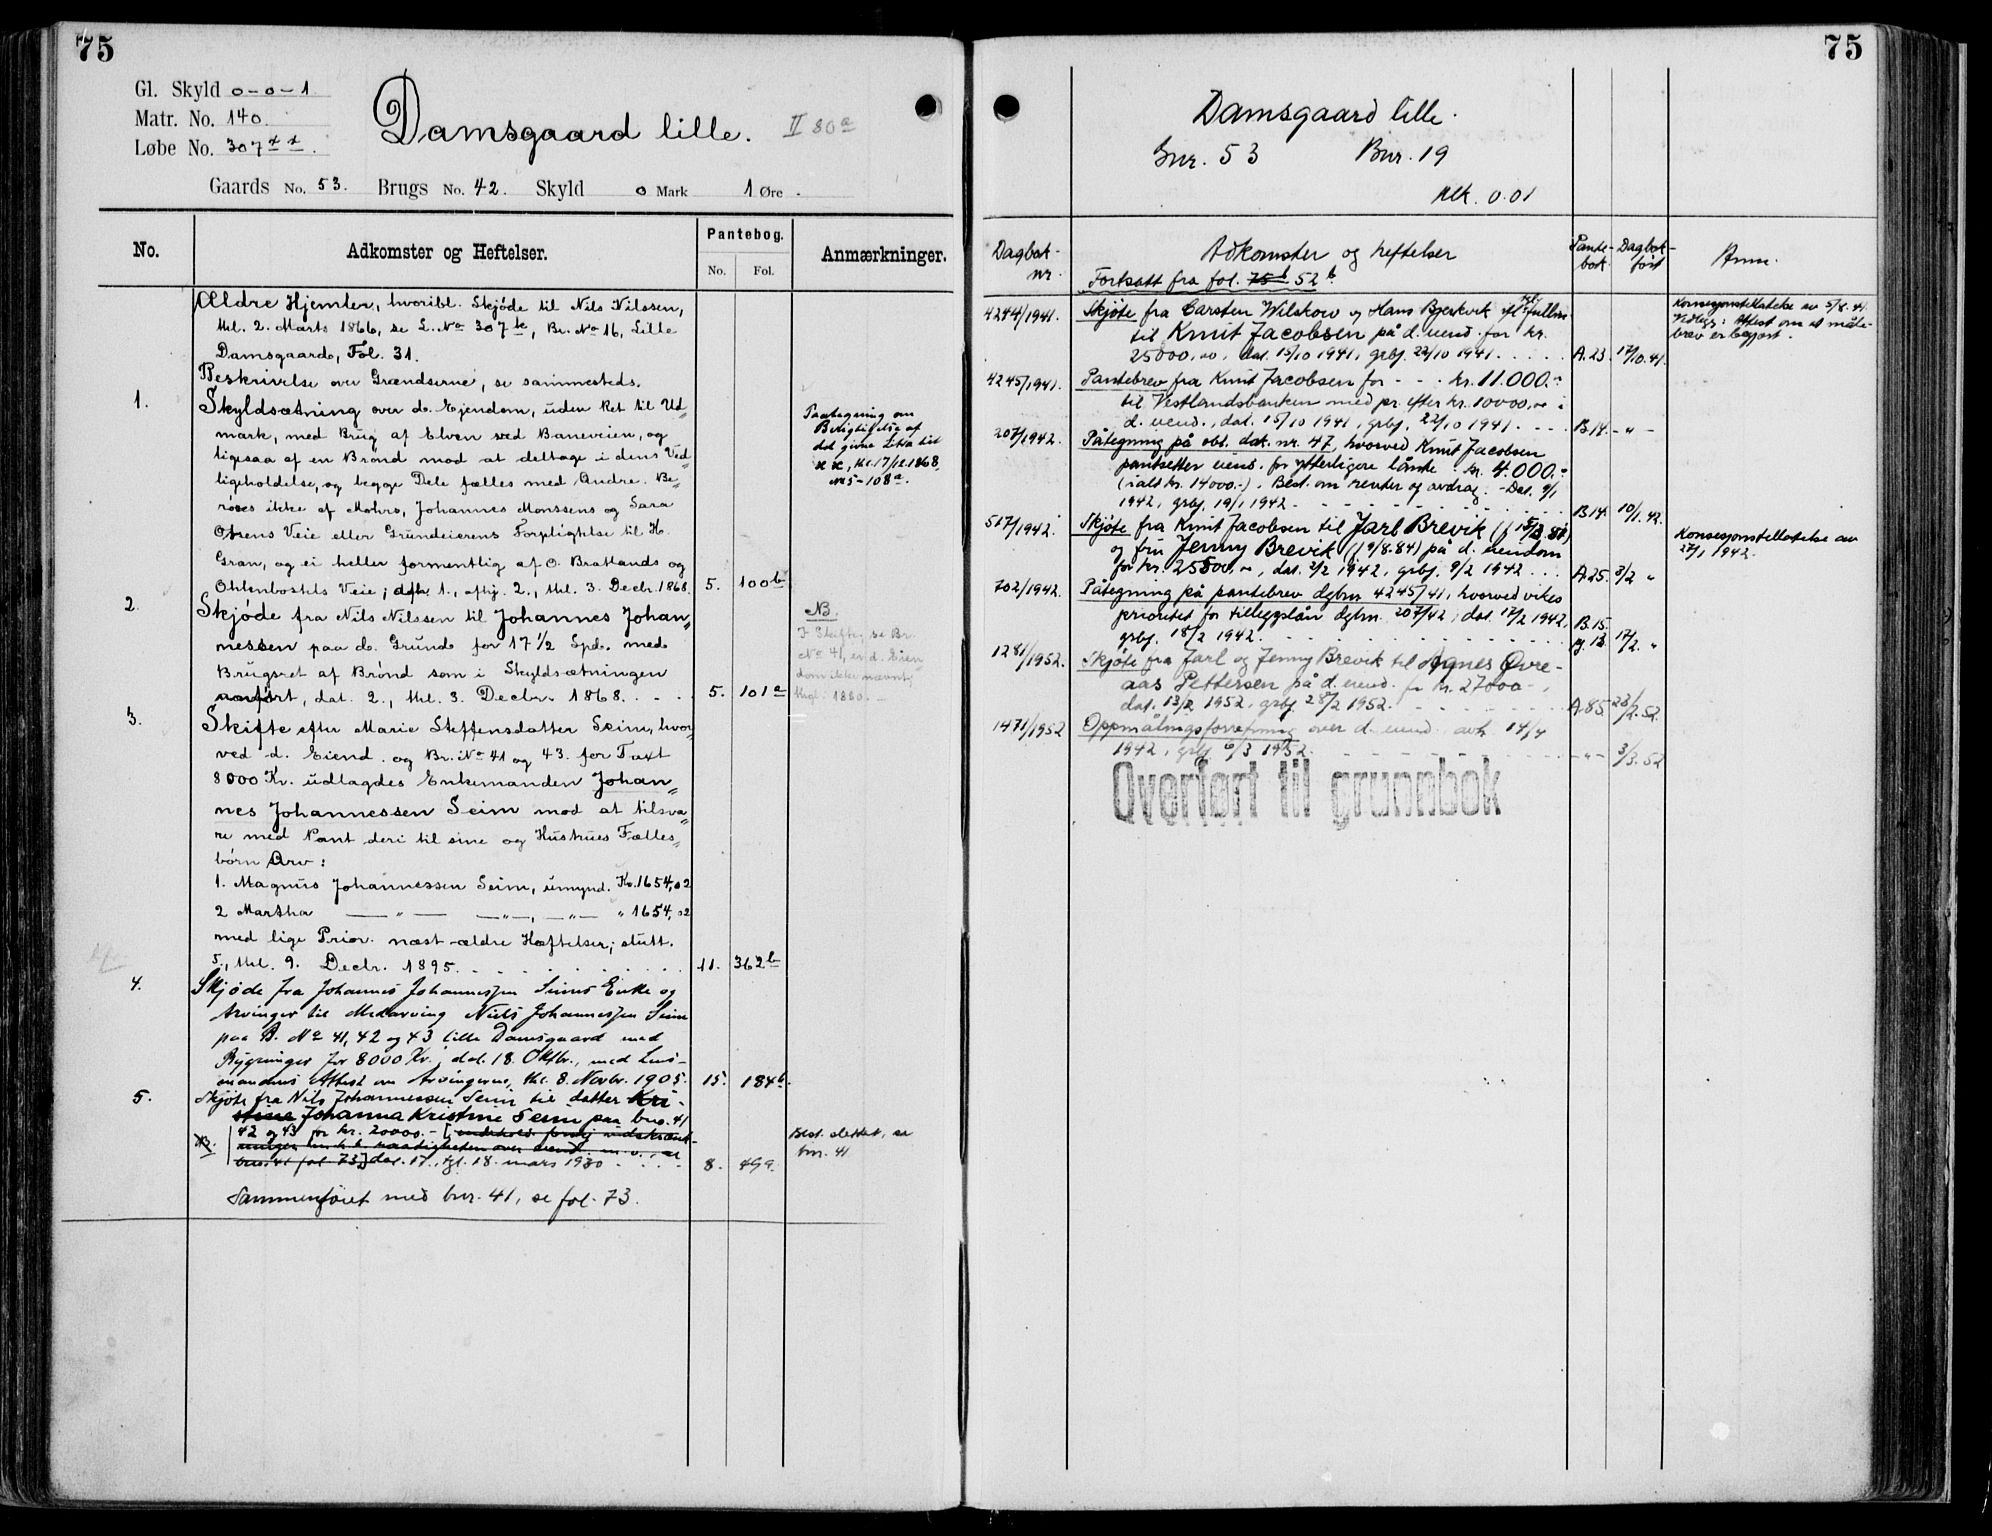 75
Gl. Skyld 0-0-1
Matr. No. 140.
Løbe No. 307
Damsgaard lille. II 80a
Gaards No. 53. Brugs No. 42. Skyld 0 Mark 1 Øre.
No.
Adkomster og Heftelser.
Pantebog.
No. Fol.
Anmærkninger.
Ældre Hjemler, hvoribl. Skjøde til Nils Nilssen,
thl. 2. Marts 1866, se L. No 307 k, Br. No 16, Lille
Damsgaard, Fol. 31.
Beskrivelse over Grændserne, se sammesteds.
1. Skyldsætning over d. Ejendom, uden Ret til Ud„
mark, med Brug af Elven ved Baneveien, og
ligesaa af en Brønd mod at deltage i dens Ved„
ligeholdelse, og begge Dele fælles med Andre. Be„
røres ikke af Mohrs, Johannes Monssens og Sara
Olsens Veie eller Grundeierens Forpligtelse til H.
Gran, og ei heller formentlig af O. Brattlands og
Ohlenbostels Veie; afh. 1., afhj. 2., thl. 3. Decbr. 1868. 5. 100b
Paategning om
Berigtigelse af
det givne Litra til
x x, thl. 17/12 1868,
No 5-108a.
2. Skjøde fra Nils Nilssen til Johannes Johan„
nessen paa d. Grund for 17½ Spd. med
Brugsret af Brønd som i Skyldsætningen
anført, dat. 2., thl. 3. Decbr. 1868. 5. 101a
NB.
I Skifte, se Br.
No 41, er d. Eien
dom ikke nævnt,
thgl. 1880.
3. Skifte efter Marie Steffensdatter Seim, hvor„
ved d. Eiend. og Br. No 41 og 43 for Taxt
8000 Kr. udlagdes Enkemanden Johan„
nes Johannessen Seim mod at tilsva„
re med Pant deri til sine og Hustrues Fælles„
børn Arv:
1. Magnus Johannessen Seim, umynd. Kr. 1654,02
2 Martha — „ — — „ —, — „ — „ 1654,02
med lige Prior. næst ældre Hæftelser; slutt.
5., thl. 9. Decbr. 1895. 11. 362b
4. Skjøde fra Johannes Johannessen Seims Enke og
Arvinger til Medarving Nils Johannessen Seim
paa B. No 41, 42 og 43 lille Damsgaard med
Bygninger for 8000 Kr.; dat. 18. Oktbr., med Lens-
mandens Attest om Arvingerne, thl. 8. Novbr. 1905. 15. 184b.
5. Skjøte fra Nils Johannessen Seim til datter Kri-
stine Johanna Kristine Seim paa bno. 41
42 og 43 for kr. 20000.- [indehold. forøvj. indskrænk-
ninger m.h.t. raadigheten over eiend. m.v., se
bno. 41 fol 73] dat. 17., tgl. 18. mars 1930 8. 499.
Best. slettet, se
bnr. 41
Sammenføiet med bnr. 41, se fol. 73.
75
Damsgaard lille.
Gnr. 53 Bnr. 19
Mk. 0.01
Dagbok-
nr.
Adkomster og heftelser
Pante-
bok
Dagbok-
ført
Anm.
Fortsatt fra fol. 75b 52b
4244/1941. Skjøte fra Carsten Wilskow og Hans Bjerkvik ifl. tgl. fullm.
til Knut Jacobsen på d. eiend. for kr.
25000,oo, dat. 15/10 1941, grbj. 22/10 1941. A.23. 17/10.41.
Konsesjonstillatelse av 5/8.41.
Vedlegg: Attest om at måle-
brev er begjært.
4245/1941. Pantebrev fra Knut Jacobsen for - - - kr. 11.000.-
til Vestlandsbanken med pr. efter kr. 10000,oo i
d. eiend., dat. 15/10 1941, grbj. 22/10 1941. B.14. - „ -
207/1942. Påtegning på obl. dok. nr. 47, hvorved Knut Jacobsen
pantsetter eiend. for ytterligere lånte kr. 4.000.-
(ialt kr. 14000.-). Best. om renter og avdrag. - Dat. 9/1
1942, grbj. 19/1 1942. B.14. 10/1.42.
517/1942. Skjøte fra Knut Jacobsen til Jarl Brevik (f 15/3.81)
og fru Jenny Brevik (f 9/8.84) på d. eiendom
for kr. 25500,oo, dat. 2/2 1942, grbj. 9/2 1942. A.25. 3/2 „
Konsesjonstillatelse av
27/1 1942.
702/1942. Påtegning på pantebrev dgbnr 4245/41, hvorved vikes
prioritet for tilleggslån dgbnr. 207/42; dat. 17/2 1942, B.15.
grbj. 18/2 1942. 17/2. „
1281/1952. Skjøte fra Jarl og Jenny Brevik til Agnes Øvre-
aas Pettersen på d. eiend. for kr. 27000.-,
dat. 13/2 1952, grbj. 28/2 1952. A.85. 23/2.52.
1471/1952 Oppmålingsforretning over d. eiend. avh. 14/4
1942, grbj 6/3 1952. - „ - 3/3.52
Overført til grunnbok